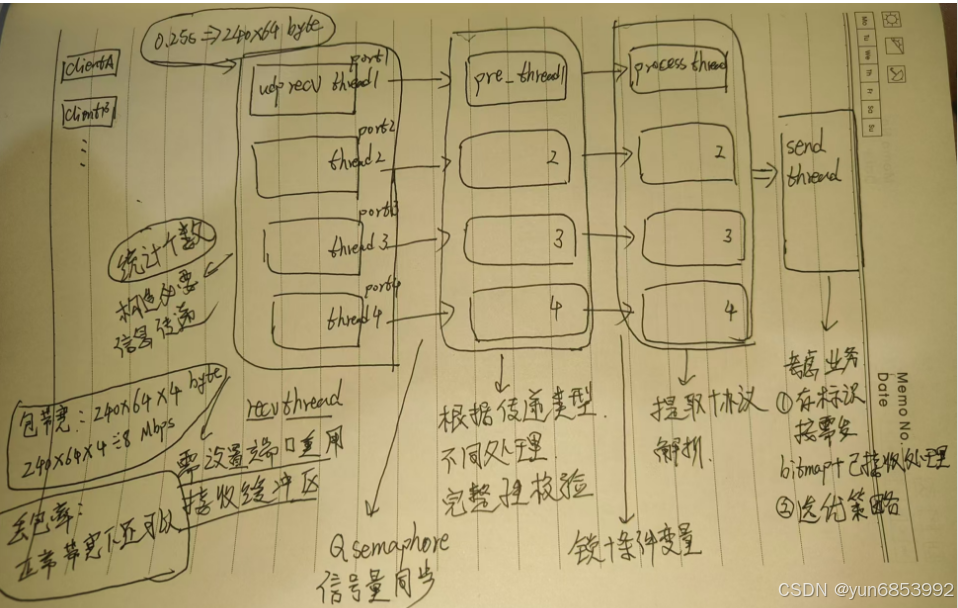 0.25s => 240x64 byte
clientA
clientB
port1
udp recv thread1
port2
thread2
port3
thread3
port4
thread4
pre_thread1
2
3
4
process thread1
2
3
4
send
thread
统计个数
构造必要
信息传递
包带宽: 240x64x4 byte
240x64x4÷8 Mbps
丢包率:
正常带宽下还可以
recvthread
需设置端口重用
接收缓冲区
根据传递类型.
不同处理.
完整性校验
提取+协议
解析.
Qsemaphore
信号量同步
锁+条件变量
考虑业务
①存标识
按需发
bitmap+已接收处理
②迭优策略
Memo No.
Date
Mo
Tu
We
Th
Fr
Sa
Su
CSDN @yun6853992